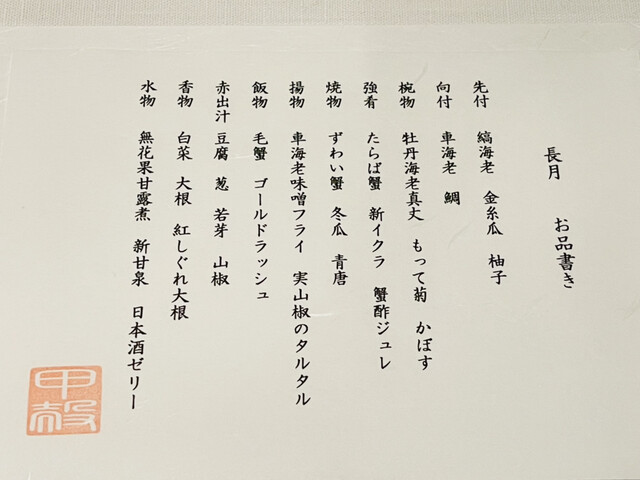 長月 お品書き
先付 縞海老 金糸瓜 柚子
向付 車海老 鯛
椀物 牡丹海老真丈 もって菊 かぼす
強肴 たらば蟹 新イクラ 蟹酢ジュレ
焼物 ずわい蟹 冬瓜 青唐
揚物 車海老味噌フライ 実山椒のタルタル
飯物 毛蟹 ゴールドラッシュ
赤出汁 豆腐 葱 若芽 山椒
香物 白菜 大根 紅しぐれ大根
水物 無花果甘露煮 新甘泉 日本酒ゼリー
甲殻